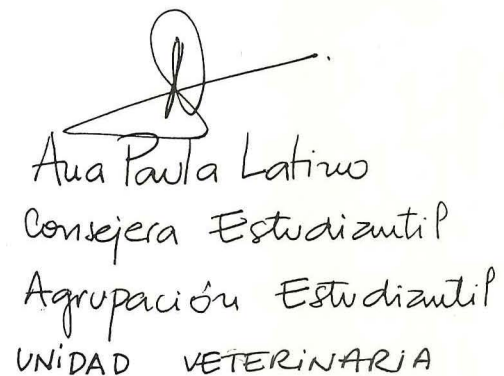 Ana Paula Latino
Consejera Estudiantil
Agrupación Estudiantil
UNIDAD VETERINARIA